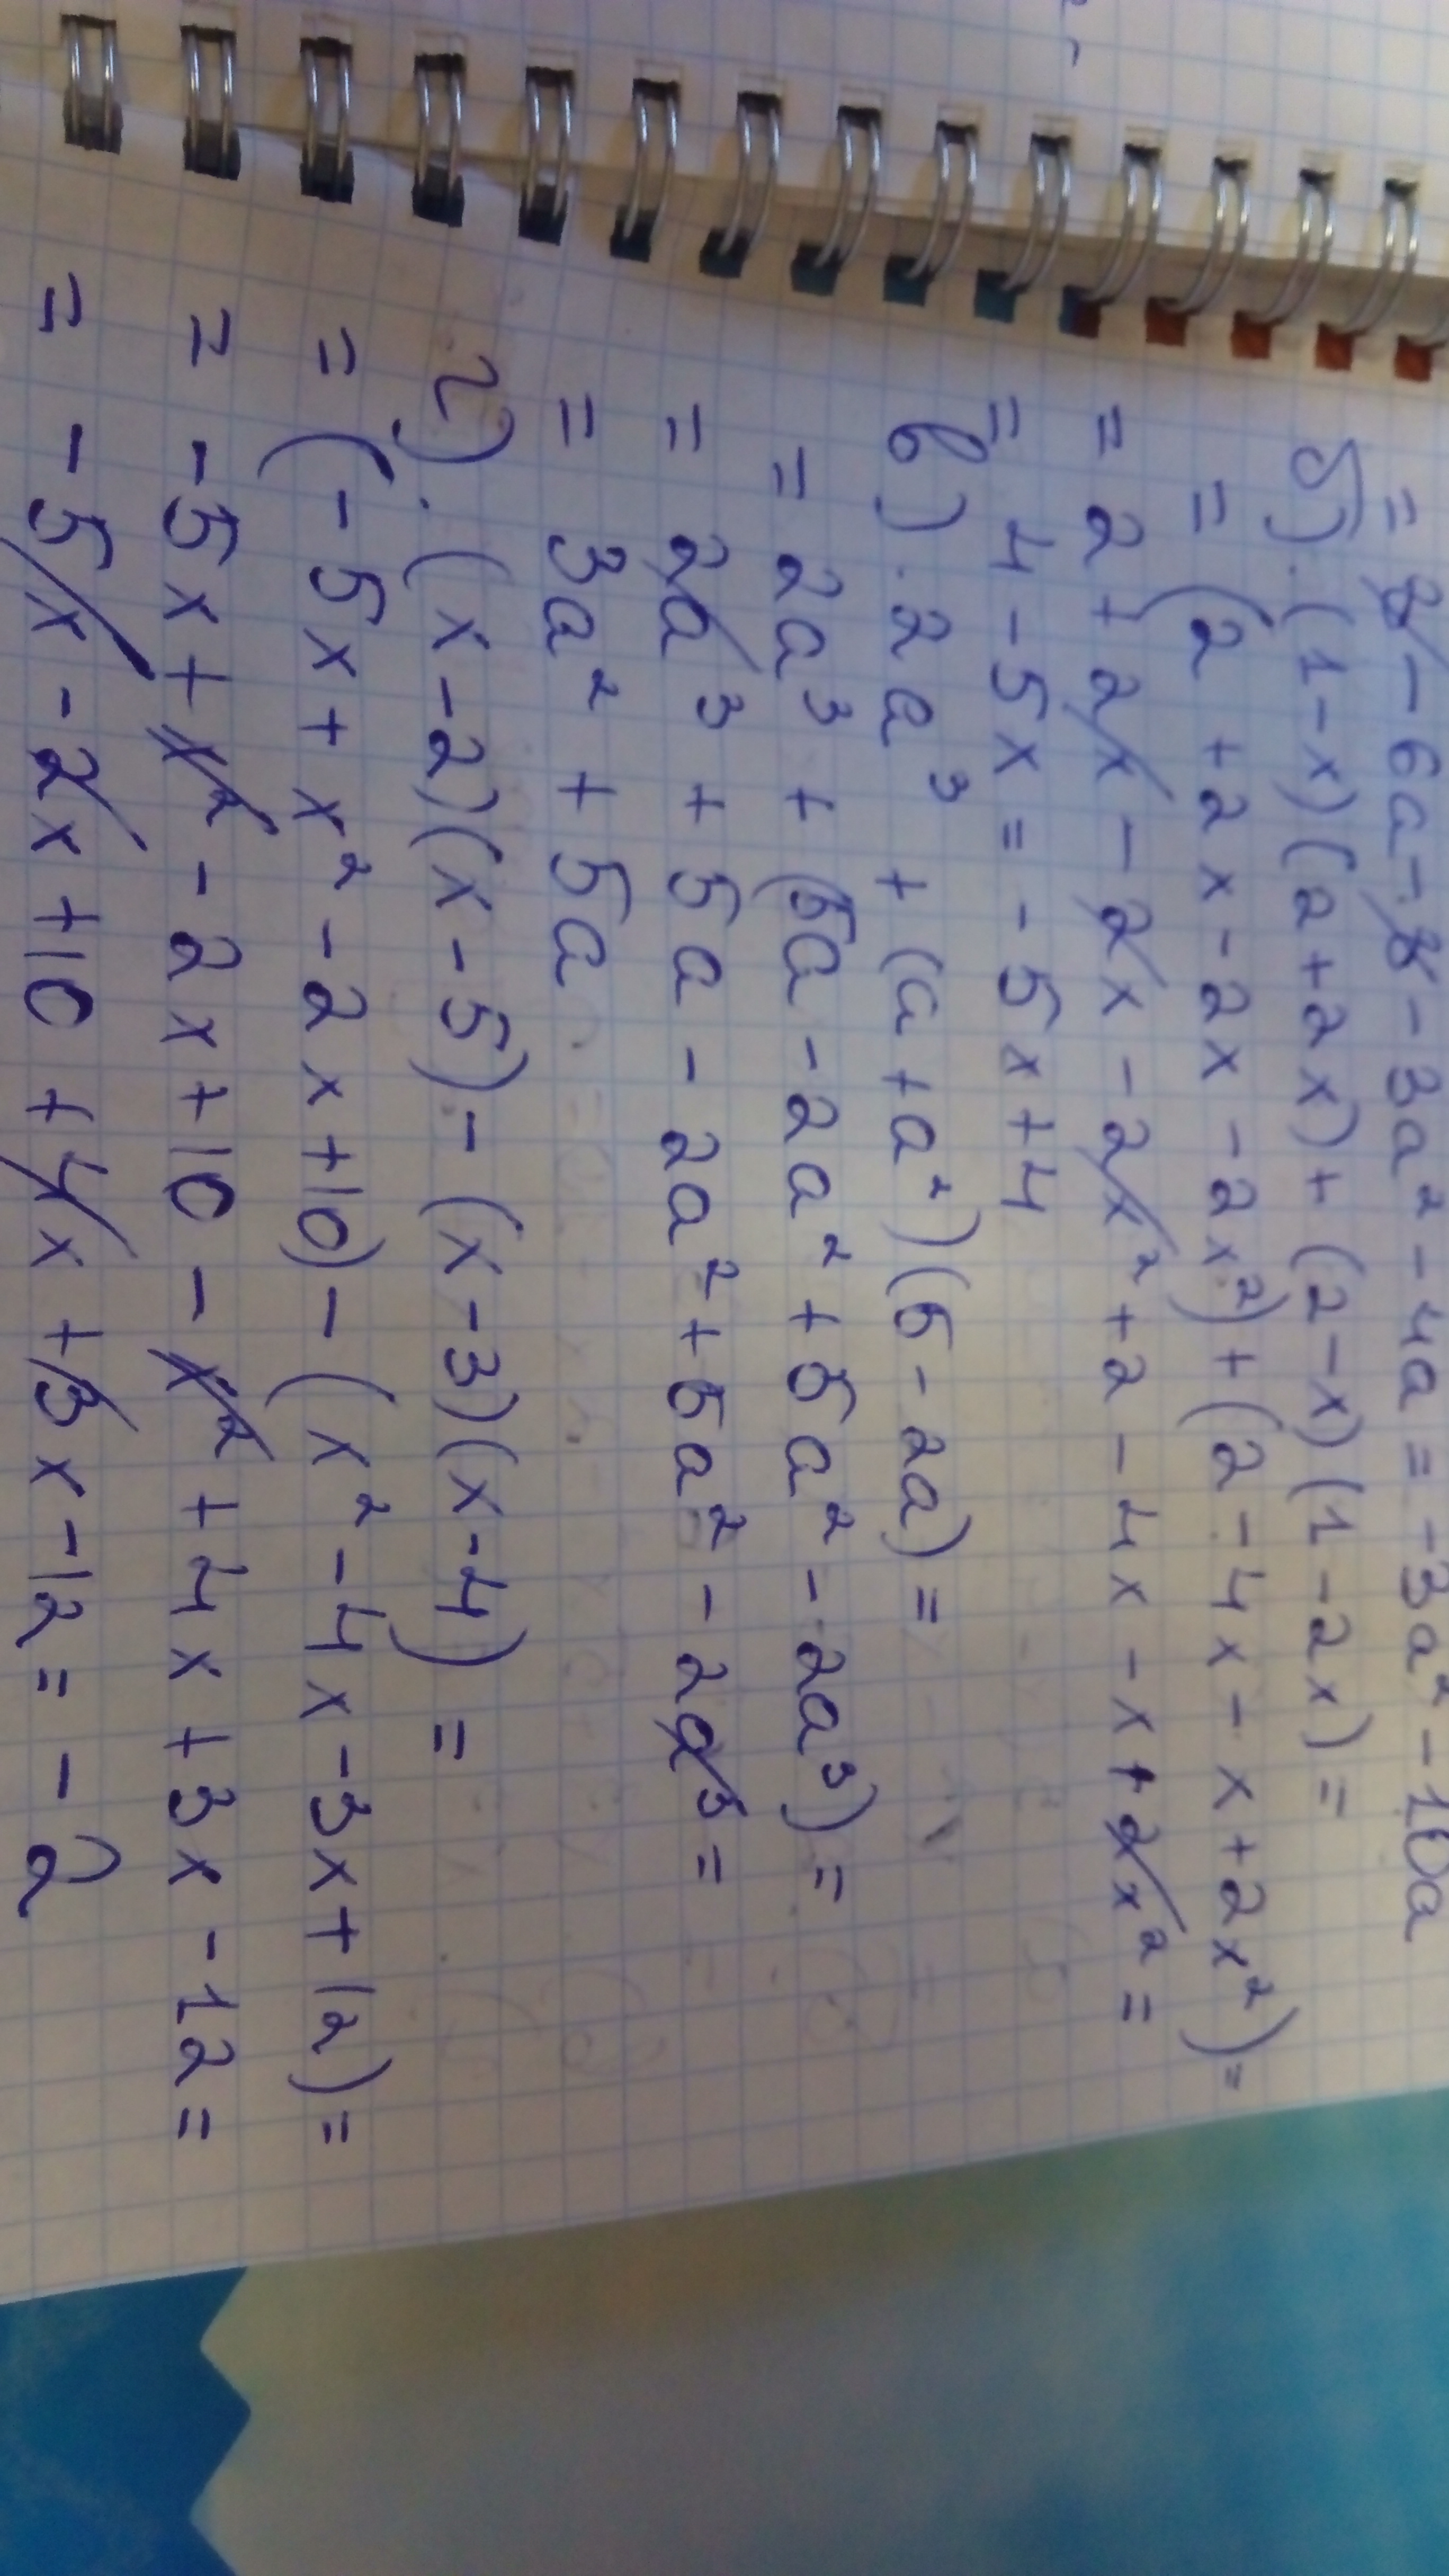 = 8 - 6a - 8 - 3a² - 4a = -3a² - 10a
б). (1-x)(2+2x) + (2-x)(1-2x) =
= (2 + 2x - 2x - 2x²) + (2 - 4x - x + 2x²) =
= 2 + 2x - 2x - 2x² + 2 - 4x - x + 2x² =
= 4 - 5x = -5x + 4
в). 2a³ + (a + a²)(5 - 2a) =
= 2a³ + (5a - 2a² + 5a² - 2a³) =
= 2a³ + 5a - 2a² + 5a² - 2a³ =
= 3a² + 5a
г). (x-2)(x-5) - (x-3)(x-4) =
= (-5x + x² - 2x + 10) - (x² - 4x - 3x + 12) =
= -5x + x² - 2x + 10 - x² + 4x + 3x - 12 =
= -5x - 2x + 10 + 4x + 3x - 12 = -2